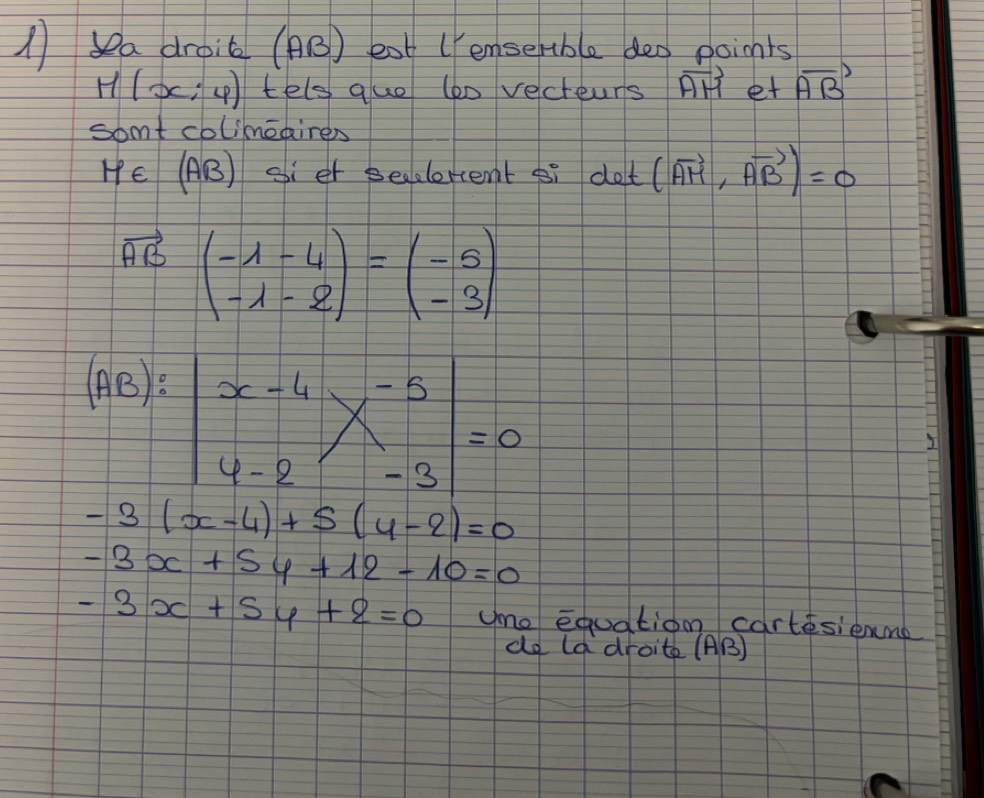 1) La droite (AB) est l'ensemble des points
M(x;y) tels que les vecteurs $\overrightarrow{AM}$ et $\overrightarrow{AB}$
sont colinéaires
M∈ (AB) si et seulement si det($\overrightarrow{AM}$, $\overrightarrow{AB}$)=0
$\overrightarrow{AB}$ $\begin{pmatrix} -1-4 \\ -1-2 \end{pmatrix} = \begin{pmatrix} -5 \\ -3 \end{pmatrix}$
(AB): $\begin{vmatrix} x-4 & -5 \\ y-2 & -3 \end{vmatrix} = 0$
-3(x-4)+5(y-2)=0
-3x+5y+12-10=0
-3x+5y+2=0 une équation cartésienne
de la droite (AB)